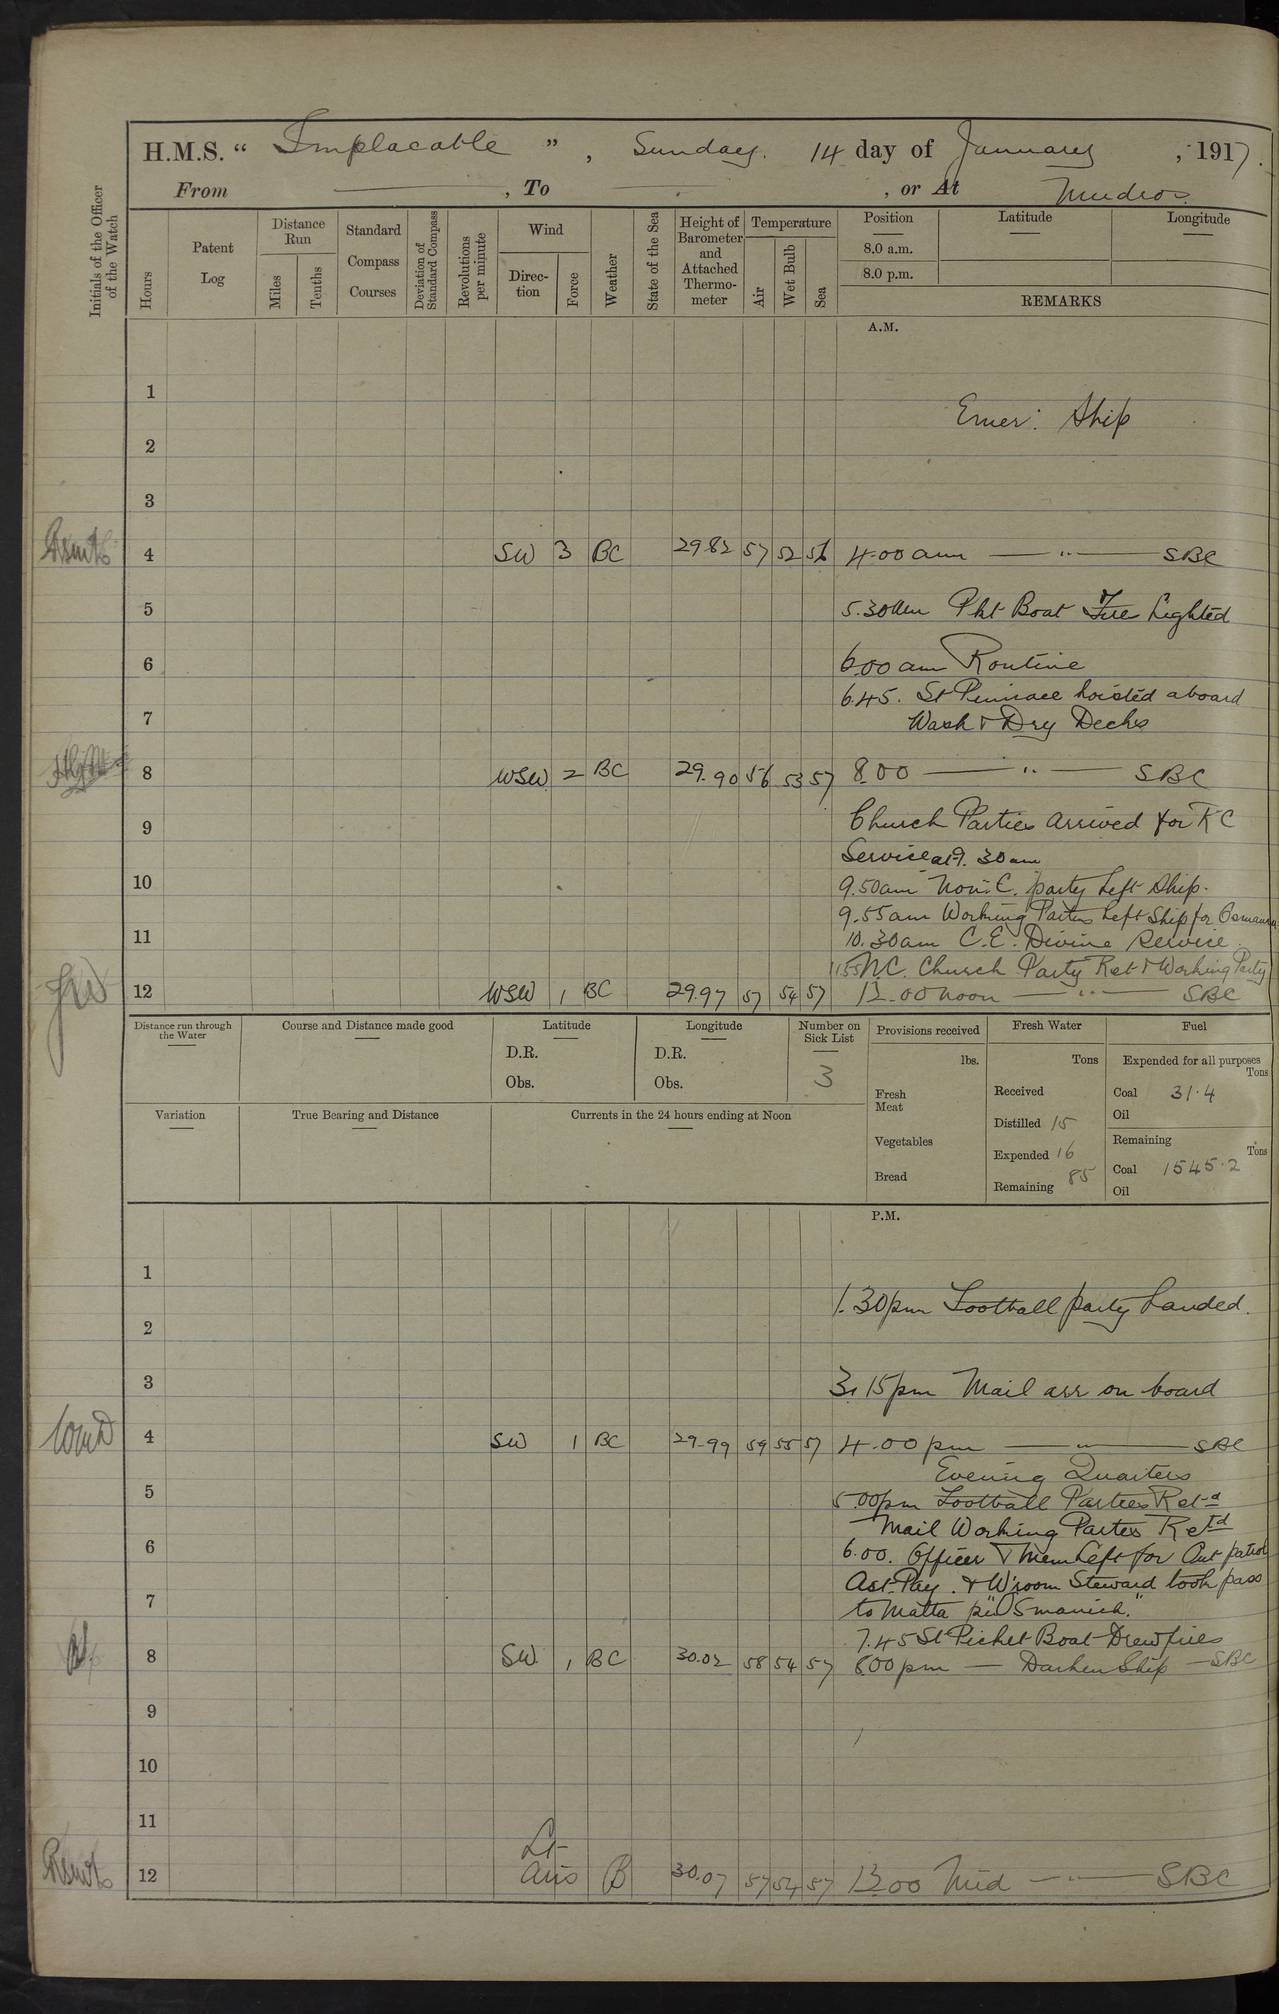 H.M.S. “ Implacable ” , Sunday. 14 day of January , 1917.
From , To , or At Mudros
Initials of the Officer of the Watch
Hours
Patent Log
Distance Run
Miles
Tenths
Standard Compass Courses
Deviation of Standard Compass
Revolutions per minute
Wind
Direc-tion
Force
Weather
State of the Sea
Height of Barometer and Attached Thermo-meter
Temperature
Air
Wet Bulb
Sea
Position
8.0 a.m.
8.0 p.m.
Latitude
Longitude
REMARKS
A.M.
1
Emer: Ship
2
3
4 SW 3 BC 29.82 57 52 56 4.00 am — " — SBC
5 5.30am Pkt Boat Fire Lighted
6 6.00 am Routine
6.45. St Pinnace hoisted aboard
7 Wash & Dry Decks
8 WSW 2 BC 29.90 56 53 57 8.00 — " — SBC
9 Church Parties arrived for RC
Service at 9.30am
10 9.50am Non. C. party Left Ship.
9.55am Working Parties Left Ship for
11 10.30am C.E. Divine Service
1155 N.C. Church Party Ret & Working Party
12 WSW 1 BC 29.97 57 54 57 12.00 noon — " — SBC
Distance run through the Water
Course and Distance made good
Latitude
D.R.
Obs.
Longitude
D.R.
Obs.
Number on Sick List
3
Provisions received
lbs.
Fresh Meat
Vegetables
Bread
Fresh Water
Tons
Received
Distilled 15
Expended 16
Remaining 85
Fuel
Expended for all purposes
Tons
Coal 31.4
Oil
Remaining
Tons
Coal 1545.2
Oil
Variation
True Bearing and Distance
Currents in the 24 hours ending at Noon
P.M.
1
1.30pm Football party Landed.
2
3 3.15pm Mail arr on board
4 SW 1 BC 29.99 59 55 57 4.00 pm — " — SBC
Evening Quarters
5 5.00pm Football Parties Retd
Mail Working Parties Retd
6 6.00. Officer & Men Left for Out patrol
Ast. Pay. & W'room Steward took pass
7 to Malta pr "Osmanieh."
7.45 St Picket Boat Drew fires
8 SW 1 BC 30.02 58 54 57 8.00 pm — Darken Ship — SBC
9
10
11
12 Lt airs B 30.07 57 54 57 12.00 Mid — " — SBC